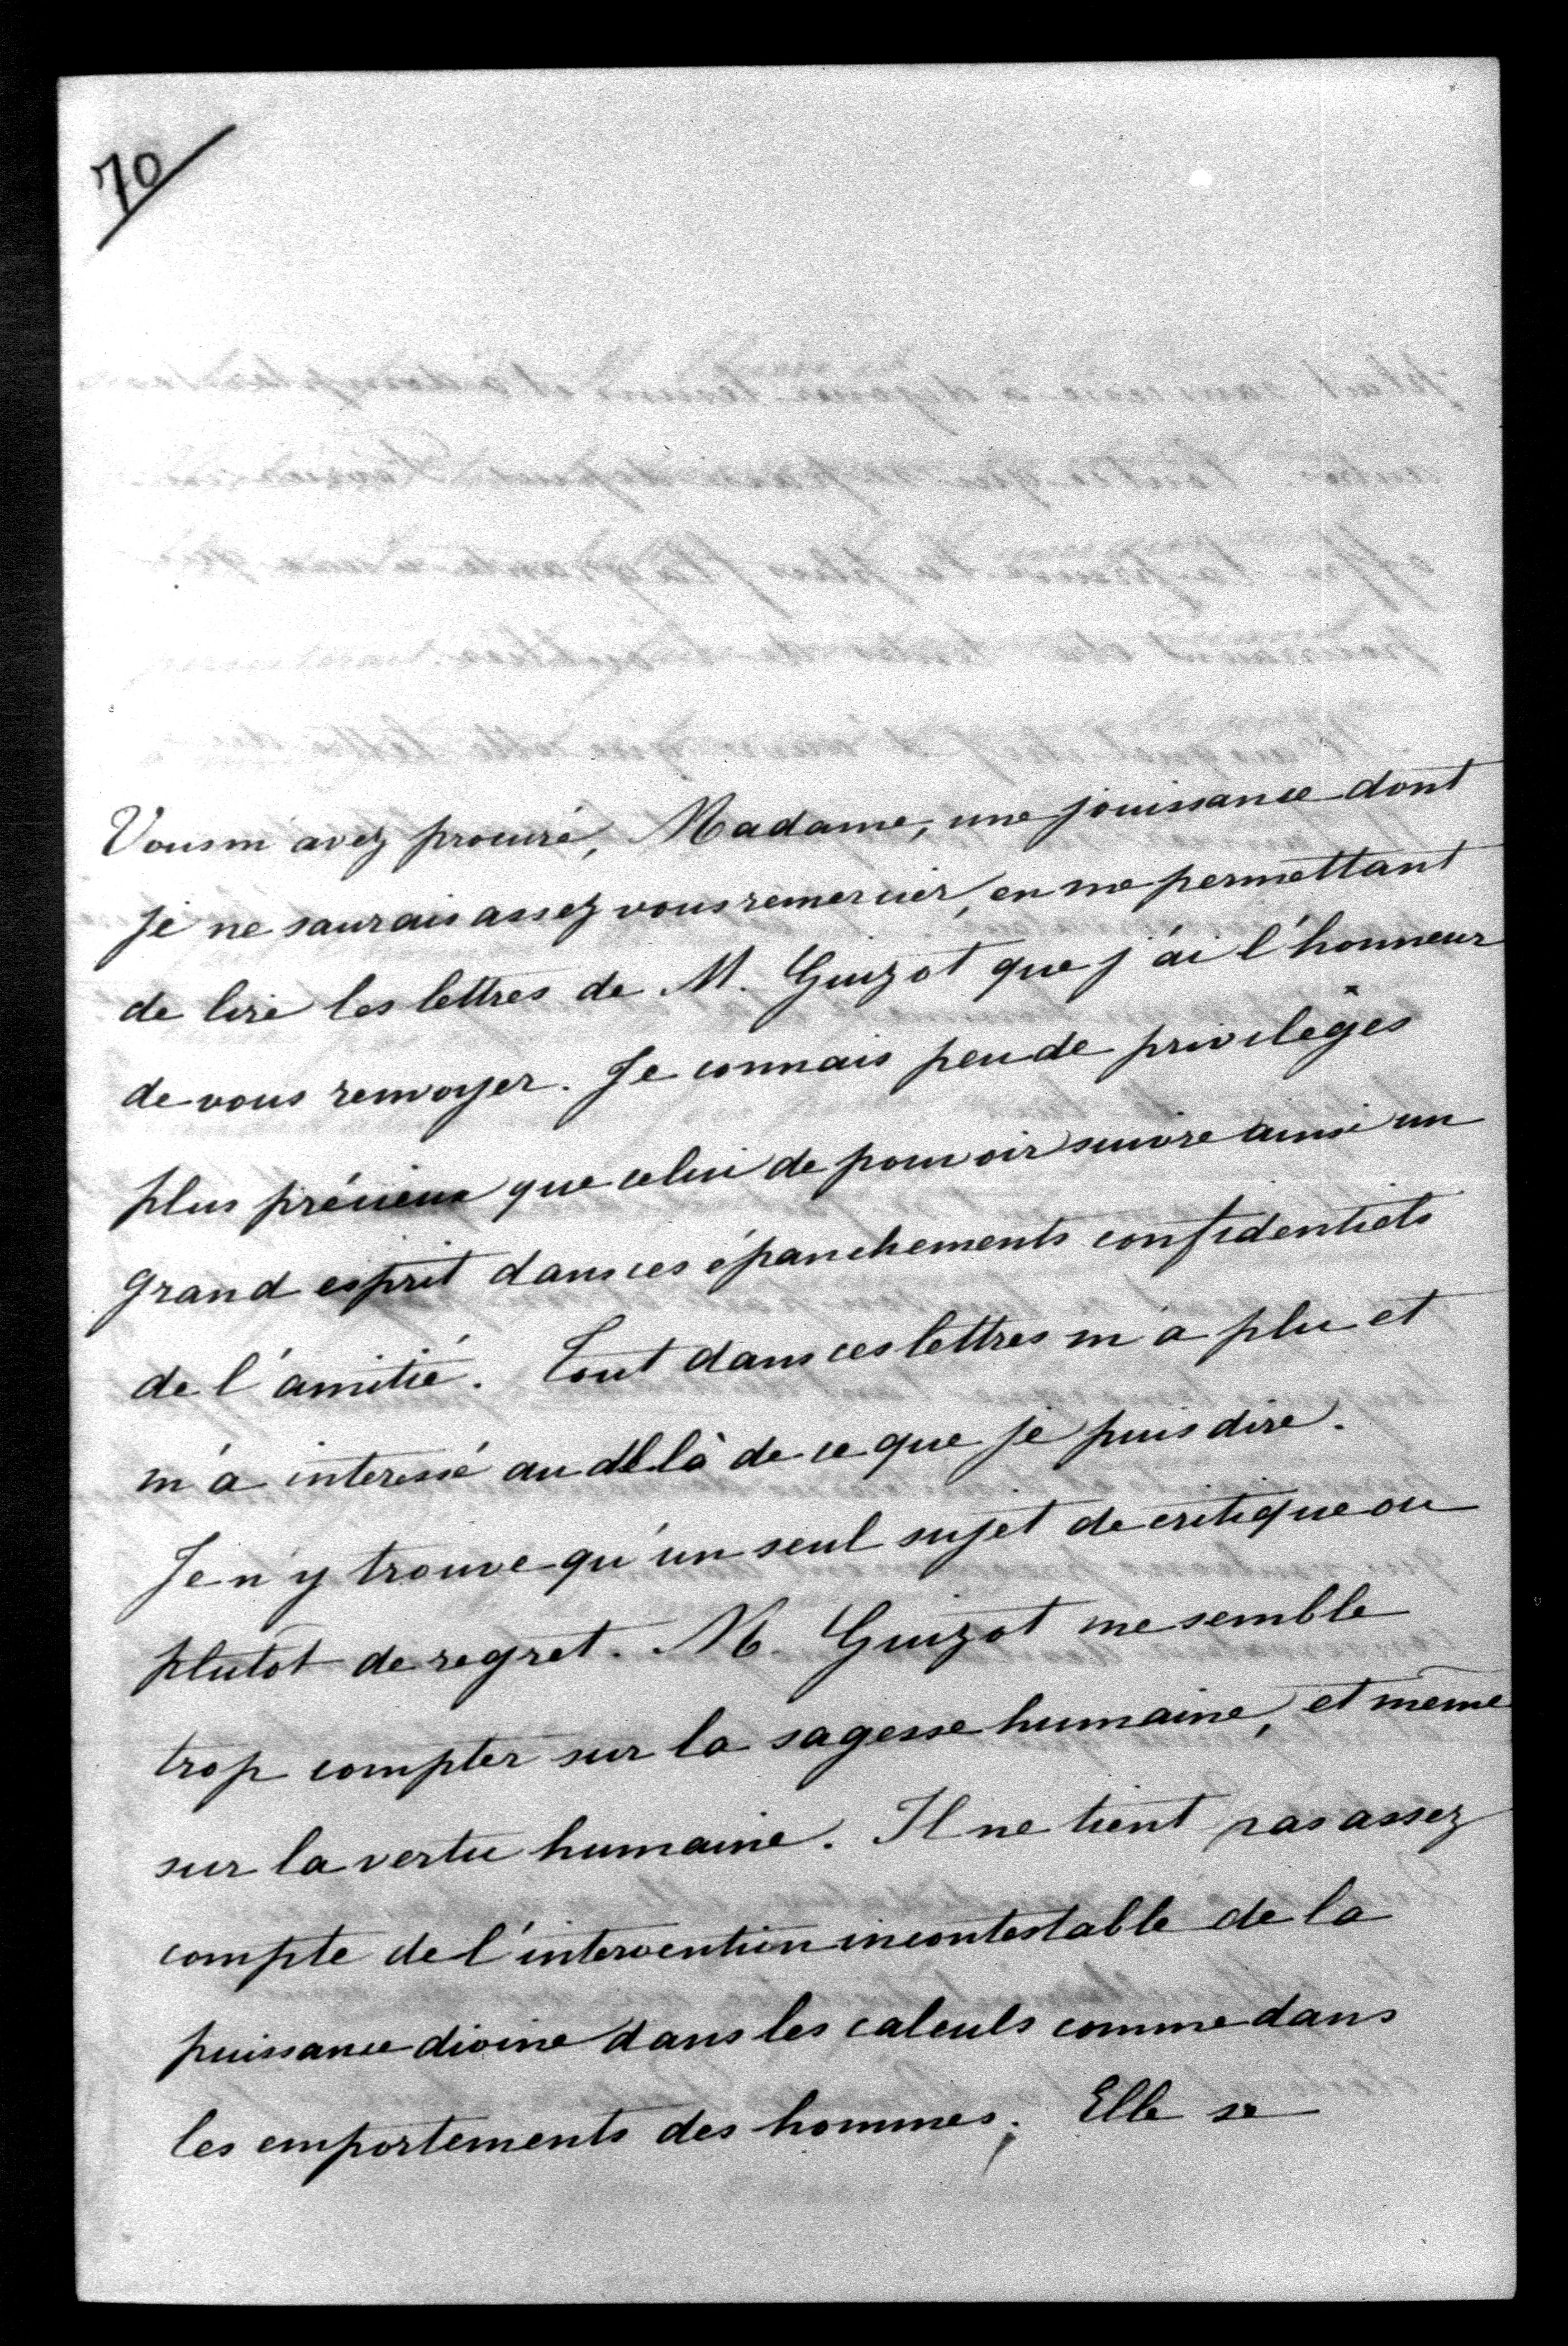 70
Vous m'avez procuré, Madame, une jouissance dont
je ne saurais assez vous remercier, en me permettant
de lire les lettres de M. Guizot que j'ai l'honneur
de vous renvoyer. Je connais peu de privilèges
plus précieux que celui de pouvoir suivre ainsi un
grand esprit dans ces épanchements confidentiels
de l'amitié. Tout dans ces lettres m'a plu et
m'a interessé au delà de ce que je puis dire.
Je n'y trouve qu'un seul sujet de critique ou
plutôt de regret. M. Guizot me semble
trop compter sur la sagesse humaine, et même
sur la vertu humaine. Il ne tient pas assez
compte de l'intervention incontestable de la
puissance divine dans les calculs comme dans
les emportements des hommes. Elle se